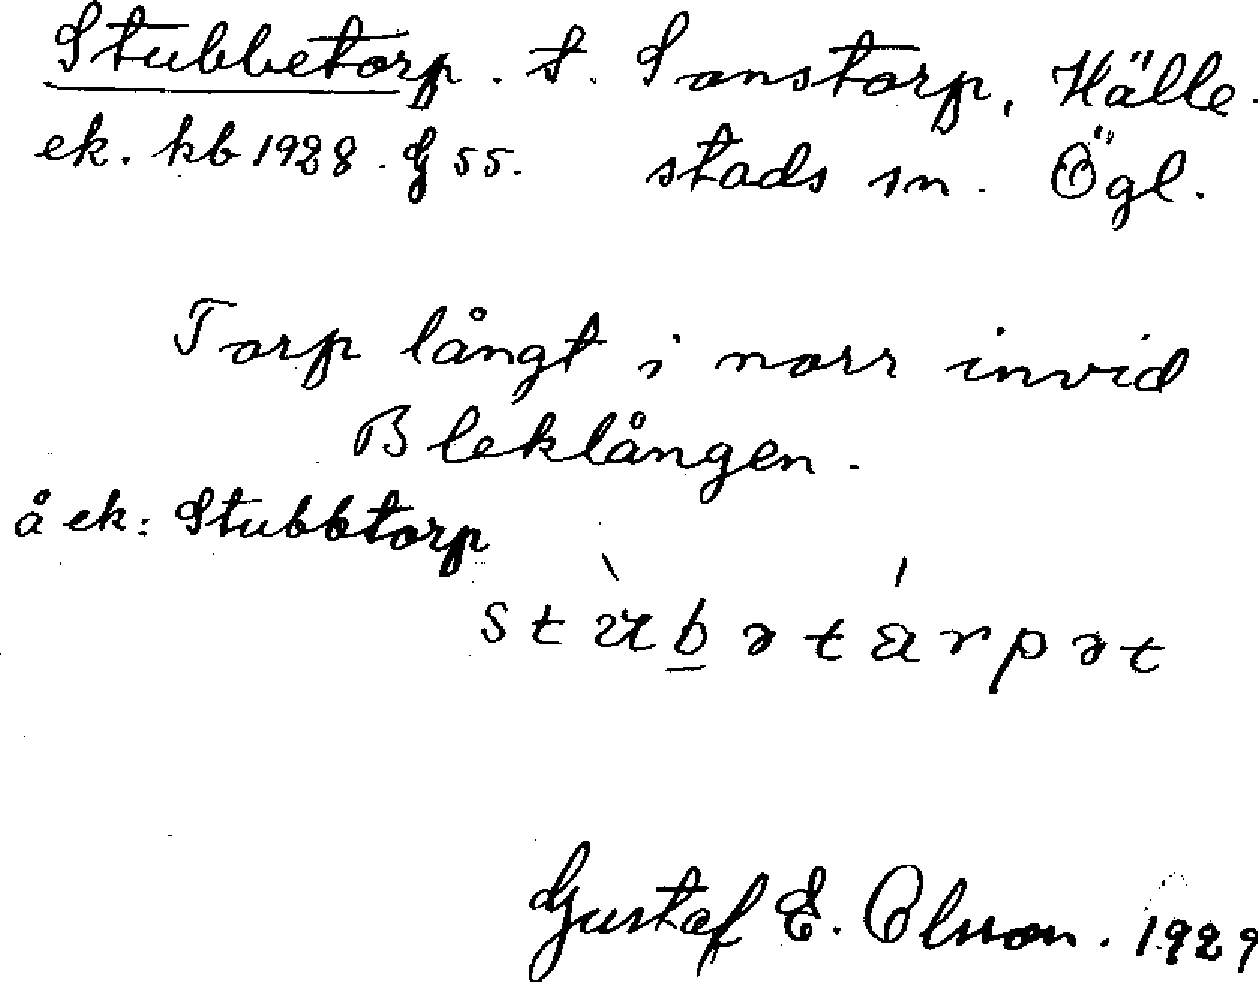 Stubbetorp. t. Sonstorp, Hälle-
ek. kb 1928. G 55. stads sn. Ögl.
Torp långt i norr invid
Bleklången.
å ek: Stubbtorp
Gustaf E. Olsson. 1929